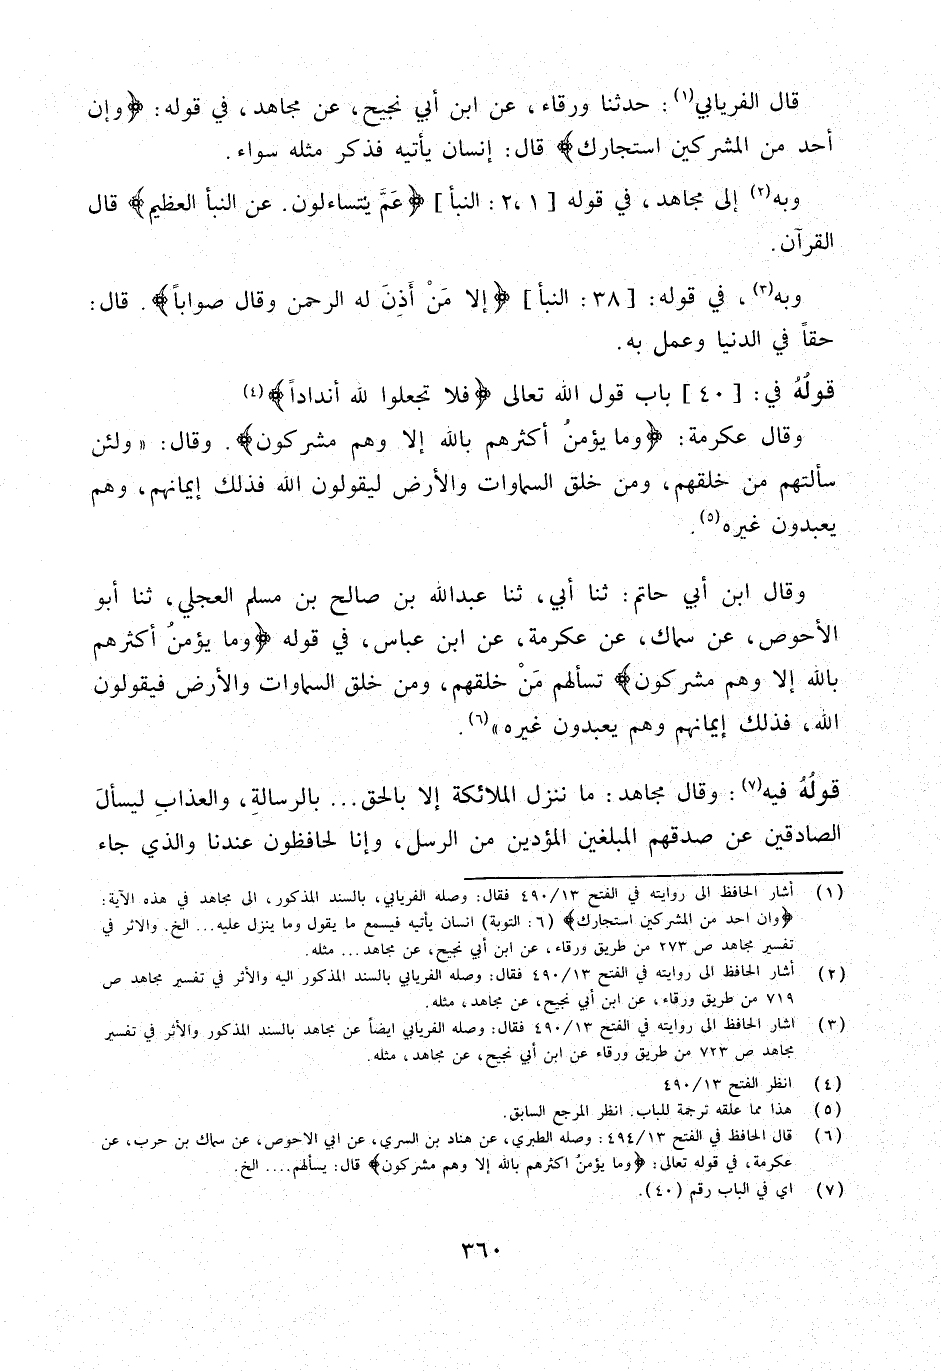 قال الفريابي(١) : حدثنا ورقاء، عن ابن أبي نجيح، عن مجاهد، في قوله: ﴿وإن
أحد من المشركين استجارك﴾ قال: إنسان يأتيه فذكر مثله سواء.
وبه(٢) إلى مجاهد، في قوله [ ٢،١ : النبأ ] ﴿عَمَّ يتساءلون. عن النبأ العظيم﴾ قال
القرآن.
وبه(٣)، في قوله: [ ٣٨ : النبأ ] ﴿إلا مَنْ أَذِنَ له الرحمن وقال صواباً﴾. قال:
حقاً في الدنيا وعمل به.
قولُهُ في: [ ٤٠ ] باب قول الله تعالى ﴿فلا تجعلوا لله أنداداً﴾(٤)
وقال عكرمة: ﴿وما يؤمنُ أكثرهم بالله إلا وهم مشركون﴾. وقال: « ولئن
سألتهم من خلقهم، ومن خلق السماوات والأرض ليقولون الله فذلك إيمانهم، وهم
يعبدون غيره(٥).
وقال ابن أبي حاتم: ثنا أبي، ثنا عبدالله بن صالح بن مسلم العجلي، ثنا أبو
الأحوص، عن سماك، عن عكرمة، عن ابن عباس، في قوله ﴿وما يؤمنُ أكثرهم
بالله إلا وهم مشركون﴾ تسألهم مَنْ خلقهم، ومن خلق السماوات والأرض فيقولون
الله، فذلك إيمانهم وهم يعبدون غيره»(٦).
قولُهُ فيه(٧): وقال مجاهد: ما ننزل الملائكة إلا بالحق... بالرسالةِ، والعذابِ ليسألَ
الصادقين عن صدقهم المبلغين المؤدين من الرسل، وإنا لحافظون عندنا والذي جاء
(١) أشار الحافظ الى روايته في الفتح ٤٩٠/١٣ فقال: وصله الفريابي، بالسند المذكور، الى مجاهد في هذه الآية:
﴿وان احد من المشركين استجارك﴾ (٦ : التوبة) انسان يأتيه فيسمع ما يقول وما ينزل عليه... الخ. والاثر في
تفسير مجاهد ص ٢٧٣ من طريق ورقاء، عن ابن أبي نجيح، عن مجاهد... مثله.
(٢) أشار الحافظ الى روايته في الفتح ٤٩٠/١٣ فقال: وصله الفريابي بالسند المذكور اليه والأثر في تفسير مجاهد ص
٧١٩ من طريق ورقاء، عن ابن أبي نجيح، عن مجاهد، مثله.
(٣) اشار الحافظ الى روايته في الفتح ٤٩٠/١٣ فقال: وصله الفريابي ايضاً عن مجاهد بالسند المذكور والأثر في تفسير
مجاهد ص ٧٢٣ من طريق ورقاء عن ابن أبي نجيح، عن مجاهد، مثله.
(٤) انظر الفتح ٤٩٠/١٣
(٥) هذا مما علقه ترجمة للباب. انظر المرجع السابق.
(٦) قال الحافظ في الفتح ٤٩٤/١٣: وصله الطبري، عن هناد بن السري، عن ابي الاحوص، عن سماك بن حرب، عن
عكرمة، في قوله تعالى: ﴿وما يؤمنُ اكثرهم بالله إلا وهم مشركون﴾ قال: يسألهم.... الخ.
(٧) اي في الباب رقم (٤٠).
٣٦٠